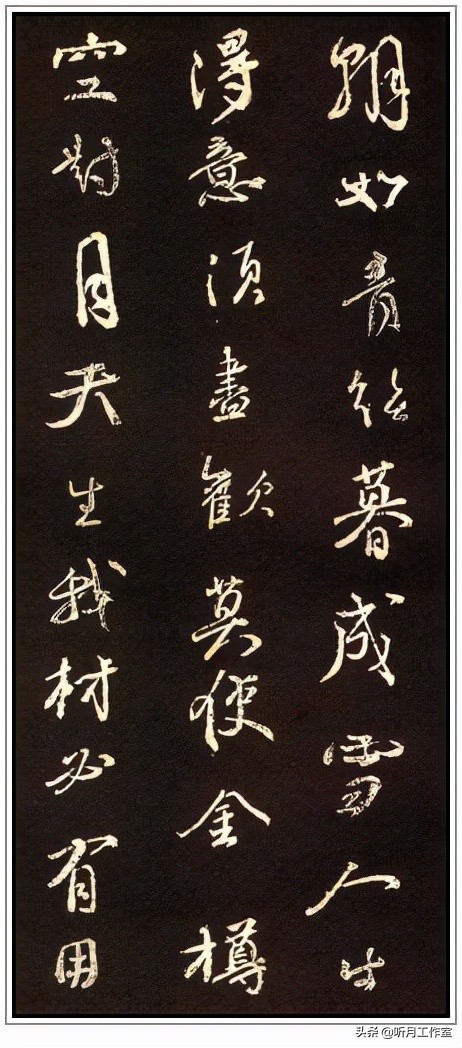 朝如青絲暮成雪人生
得意須盡歡莫使金樽
空對月天生我材必有用
头条 @听月工作室